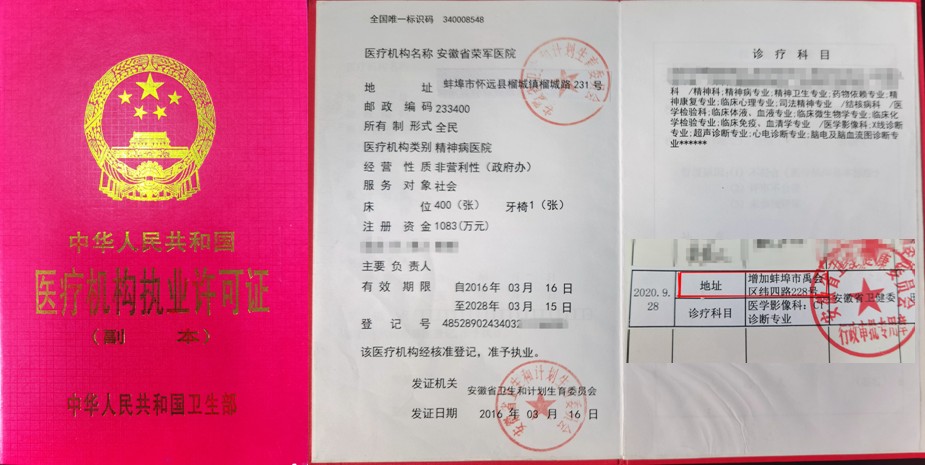 中华人民共和国
医疗机构执业许可证
(副 本)
中华人民共和国卫生部
全国唯一标识码 340008548
医疗机构名称 安徽省荣军医院
地 址 蚌埠市怀远县榴城镇榴城路231号
邮政编码 233400
所有制形式 全民
医疗机构类别 精神病医院
经营性质 非营利性(政府办)
服务对象 社会
床 位 400(张) 牙椅1(张)
注册资金 1083(万元)
主要负责人
有效期限 自2016年 03月 16日
至2028年 03月 15日
登记号 48528902434032
该医疗机构经核准登记,准予执业。
发证机关 安徽省卫生和计划生育委员会
发证日期 2016年 03月 16日
诊疗科目
科 /精神科;精神病专业;精神卫生专业;药物依赖专业;精
神康复专业;临床心理专业;司法精神专业 /结核病科 /医
学检验科;临床体液、血液专业;临床微生物学专业;临床化
学检验专业;临床免疫、血清学专业 /医学影像科;X线诊断
专业;超声诊断专业;心电诊断专业;脑电及脑血流图诊断专
业******
2020.9.28
地址 增加蚌埠市禹会区纬四路228号
安徽省卫健委
诊疗科目 医学影像科:CT诊断专业
行政审批专用章